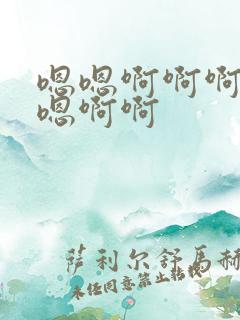 嗯嗯啊啊啊
嗯啊啊
萨利尔舒马赫
未经同意禁止转载